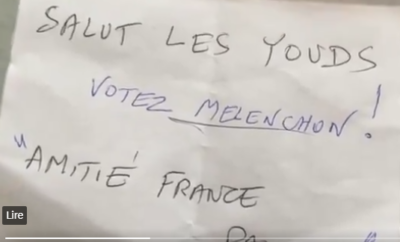 SALUT LES YOUDS
VOTEZ MELENCHON !
"AMITIÉ FRANCE
Lire